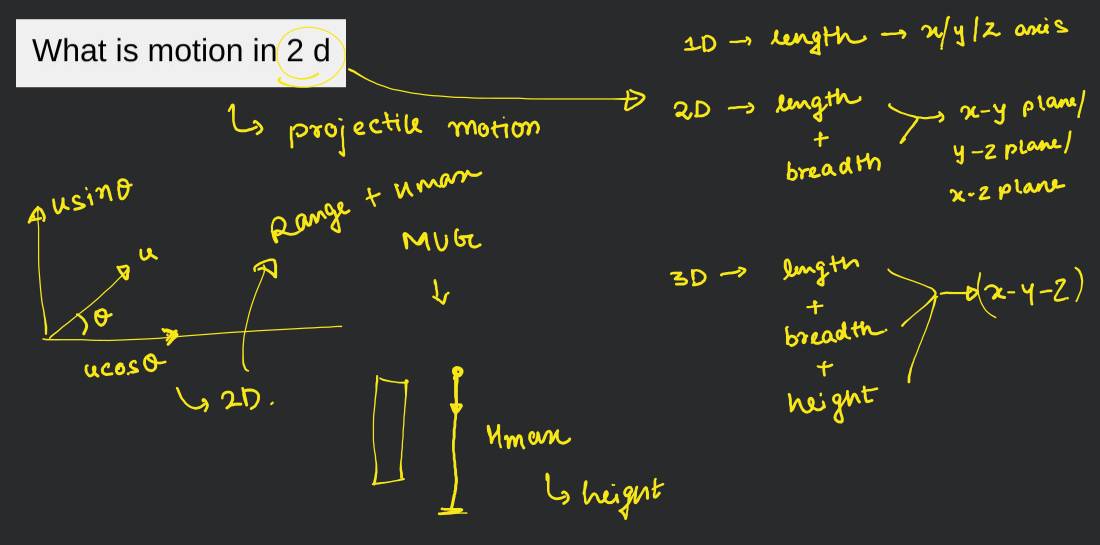 What is motion in 2 d
↳ projectile motion
1D → length → x/y/z axis
2D → length + breadth → x-y plane/
y-z plane/
x-z plane
usinθ
u
θ
ucosθ
↳ 2D.
Range + Hmax
MUG
↓
Hmax
↳ height
3D → length + breadth + height → (x-y-z)